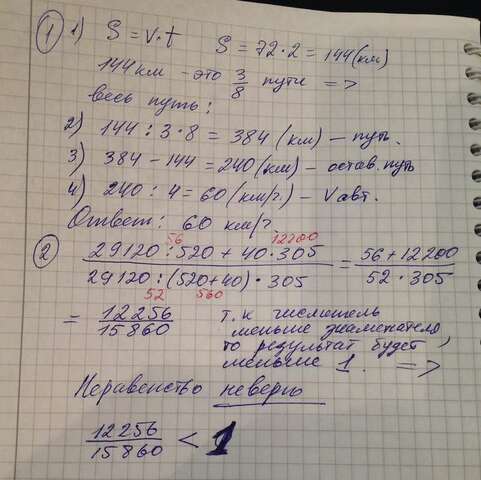 ① 1) S = v·t   S = 72·2 = 144 (км)
144 км - это 3/8 пути =>
весь путь:
2) 144 : 3 · 8 = 384 (км) — путь.
3) 384 - 144 = 240 (км) — остав. путь
4) 240 : 4 = 60 (км/ч.) — Vавт.
Ответ: 60 км/ч.
② 56 12200
29120 : 520 + 40 · 305 / 29120 : (520+40) · 305 = 56 + 12200 / 52 · 305
52 560
= 12256 / 15860 т.к числитель
меньше знаменателя,
то результат будет
меньше 1. =>
Неравенство неверно
12256 / 15860 < 1